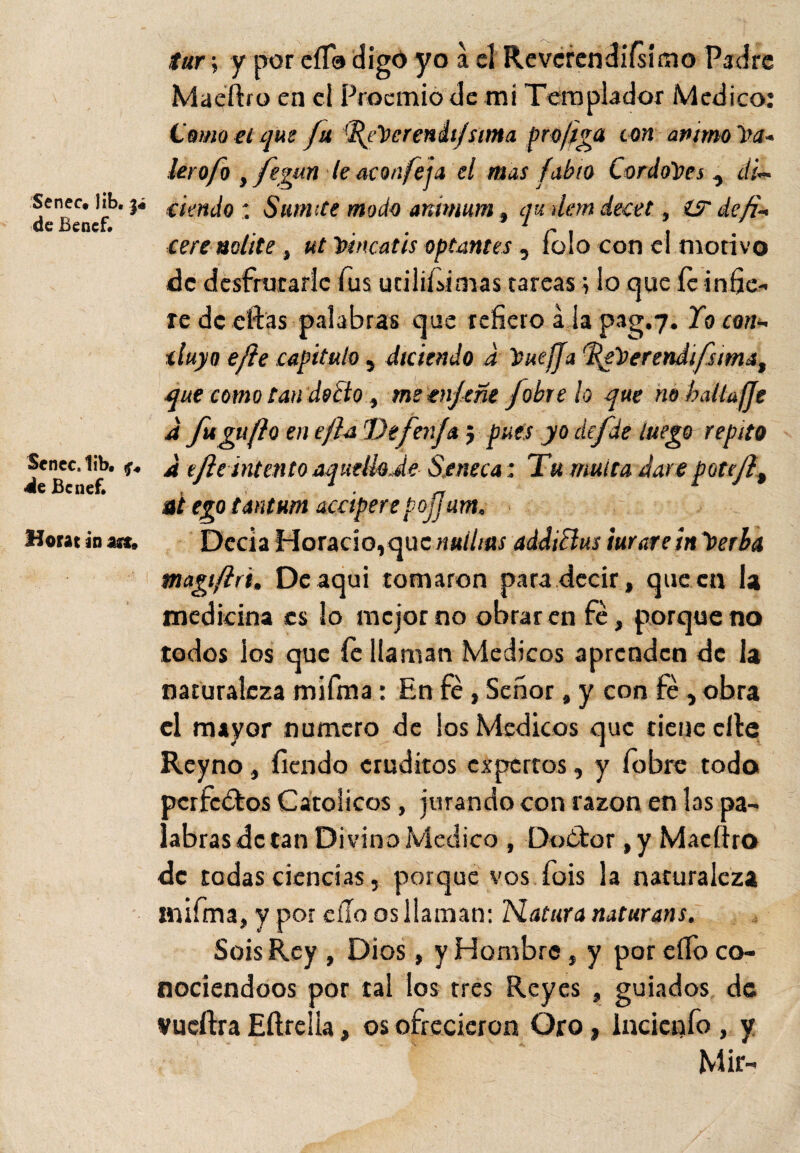 tur; y por eſſo digo yo à el Reverendiſsimo Padre
Maeſtro en el Proemio de mi Templador Medico:
Como el que ſu Reverendiſsima proſiga con animo va-
leroſo, ſegun le aconſeja el mas ſabio Cordoves, di-
Senec. lib. 3. de Benef.
ciendo: Sumite modo animum, quidem decet, & defi-
cere nolite, ut vincatis optantes, ſolo con el motivo
de desfrutarle ſus utiliſsimas tareas; lo que ſe infie-
re de eſtas palabras que refiero à la pag.7. Yo con-
cluyo eſte capitulo, diciendo à vueſſa Reverendiſsima,
que como tan docto, me enſeñe ſobre lo que no hallaſſe
à ſu guſto en eſta Defenſa; pues yo deſde luego repito
Senec. lib. 5. de Benef.
à eſte intento aquello de Seneca: Tu multa dare poteſt,
at ego tantum accipere poſſum.
Horat in art.
Decia Horacio, que nullius addictus iurare in verba
magiſtri. De aqui tomaron para decir, que en la
medicina es lo mejor no obrar en fè, porque no
todos los que ſe llaman Medicos aprenden de la
naturaleza miſma: En fè, Señor, y con fè, obra
el mayor numero de los Medicos que tiene eſte
Reyno, ſiendo eruditos expertos, y ſobre todo
perfectos Catolicos, jurando con razon en las pa-
labras de tan Divino Medico, Doctor, y Maeſtro
de todas ciencias, porque vos ſois la naturaleza
miſma, y por eſſo os llaman: Natura naturans.
Sois Rey, Dios, y Hombre, y por eſſo co-
nociendoos por tal los tres Reyes, guiados de
vueſtra Eſtrella, os ofrecieron Oro, Incienſo, y
Mir-